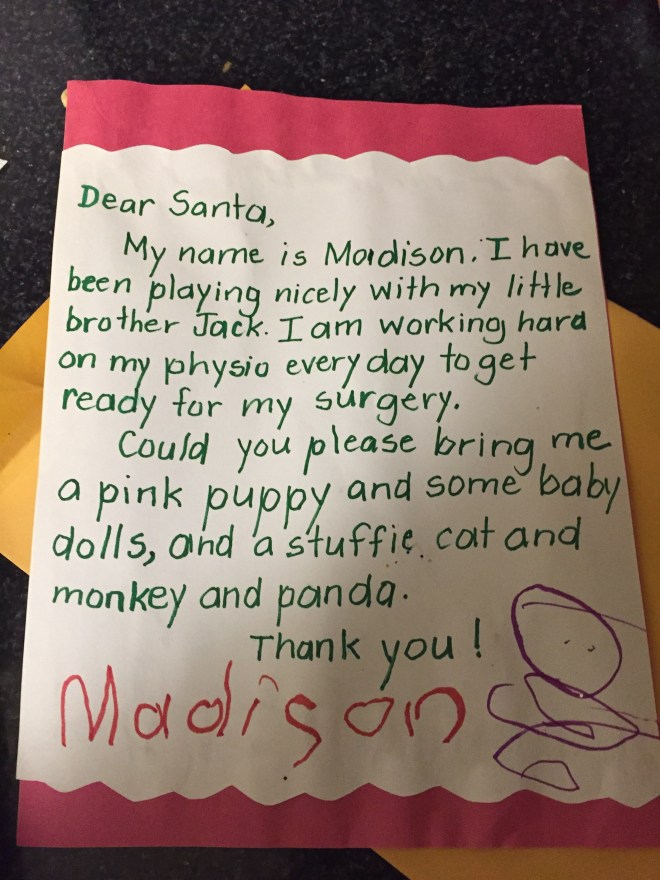 Dear Santa,
My name is Madison. I have
been playing nicely with my little
brother Jack. I am working hard
on my physio every day to get
ready for my surgery.
Could you please bring me
a pink puppy and some baby
dolls, and a stuffie cat and
monkey and panda.
Thank you!
Madison